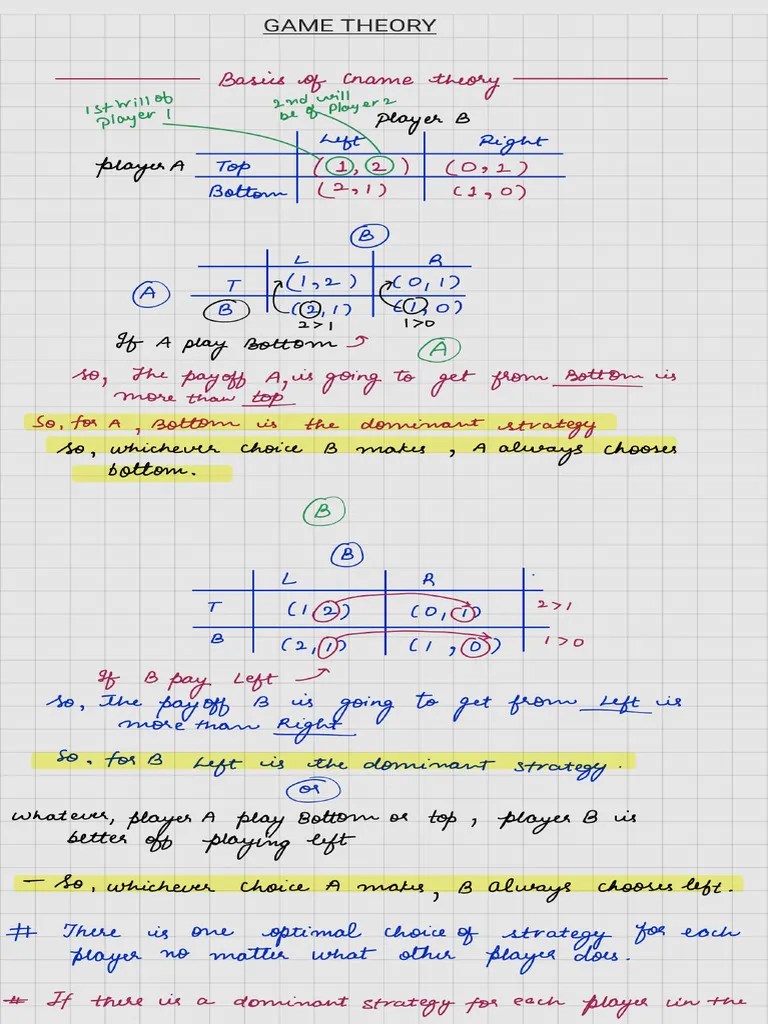 GAME THEORY
Basics of Game theory
1st will of
player 1
2nd will
be of Player 2
Player B
Left Right
player A Top (1, 2) (0, 1)
Bottom (2, 1) (1, 0)
B
L R
A T (1, 2) (0, 1)
B (2, 1) (1, 0)
2>1 1>0
If A play Bottom
A
So, The payoff A, is going to get from Bottom is
more than top
So, for A, Bottom is the dominant strategy
So, whichever choice B makes, A always chooses
bottom.
B
B
L R
T (1 2) (0, 1) 2>1
B (2, 1) (1, 0) 1>0
If B pay Left
So, The payoff B is going to get from Left is
more than Right
So, for B Left is the dominant strategy.
or
whatever, player A play Bottom or top, player B is
better off playing left
- So, whichever choice A makes, B always chooses left.
# There is one optimal choice of strategy for each
player no matter what other player does.
# If there is a dominant strategy for each player in the